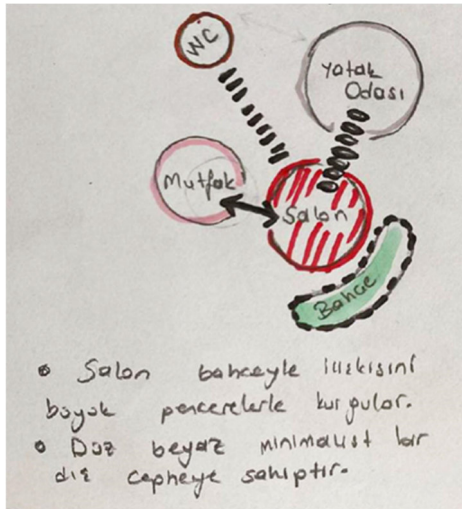 WC
Yatak
Odası
Mutfak
Salon
Bahçe
• Salon bahçeyle ilişkisini
büyük pencerelerle kurgular.
• Düz beyaz minimalist bir
dış cepheye sahiptir.